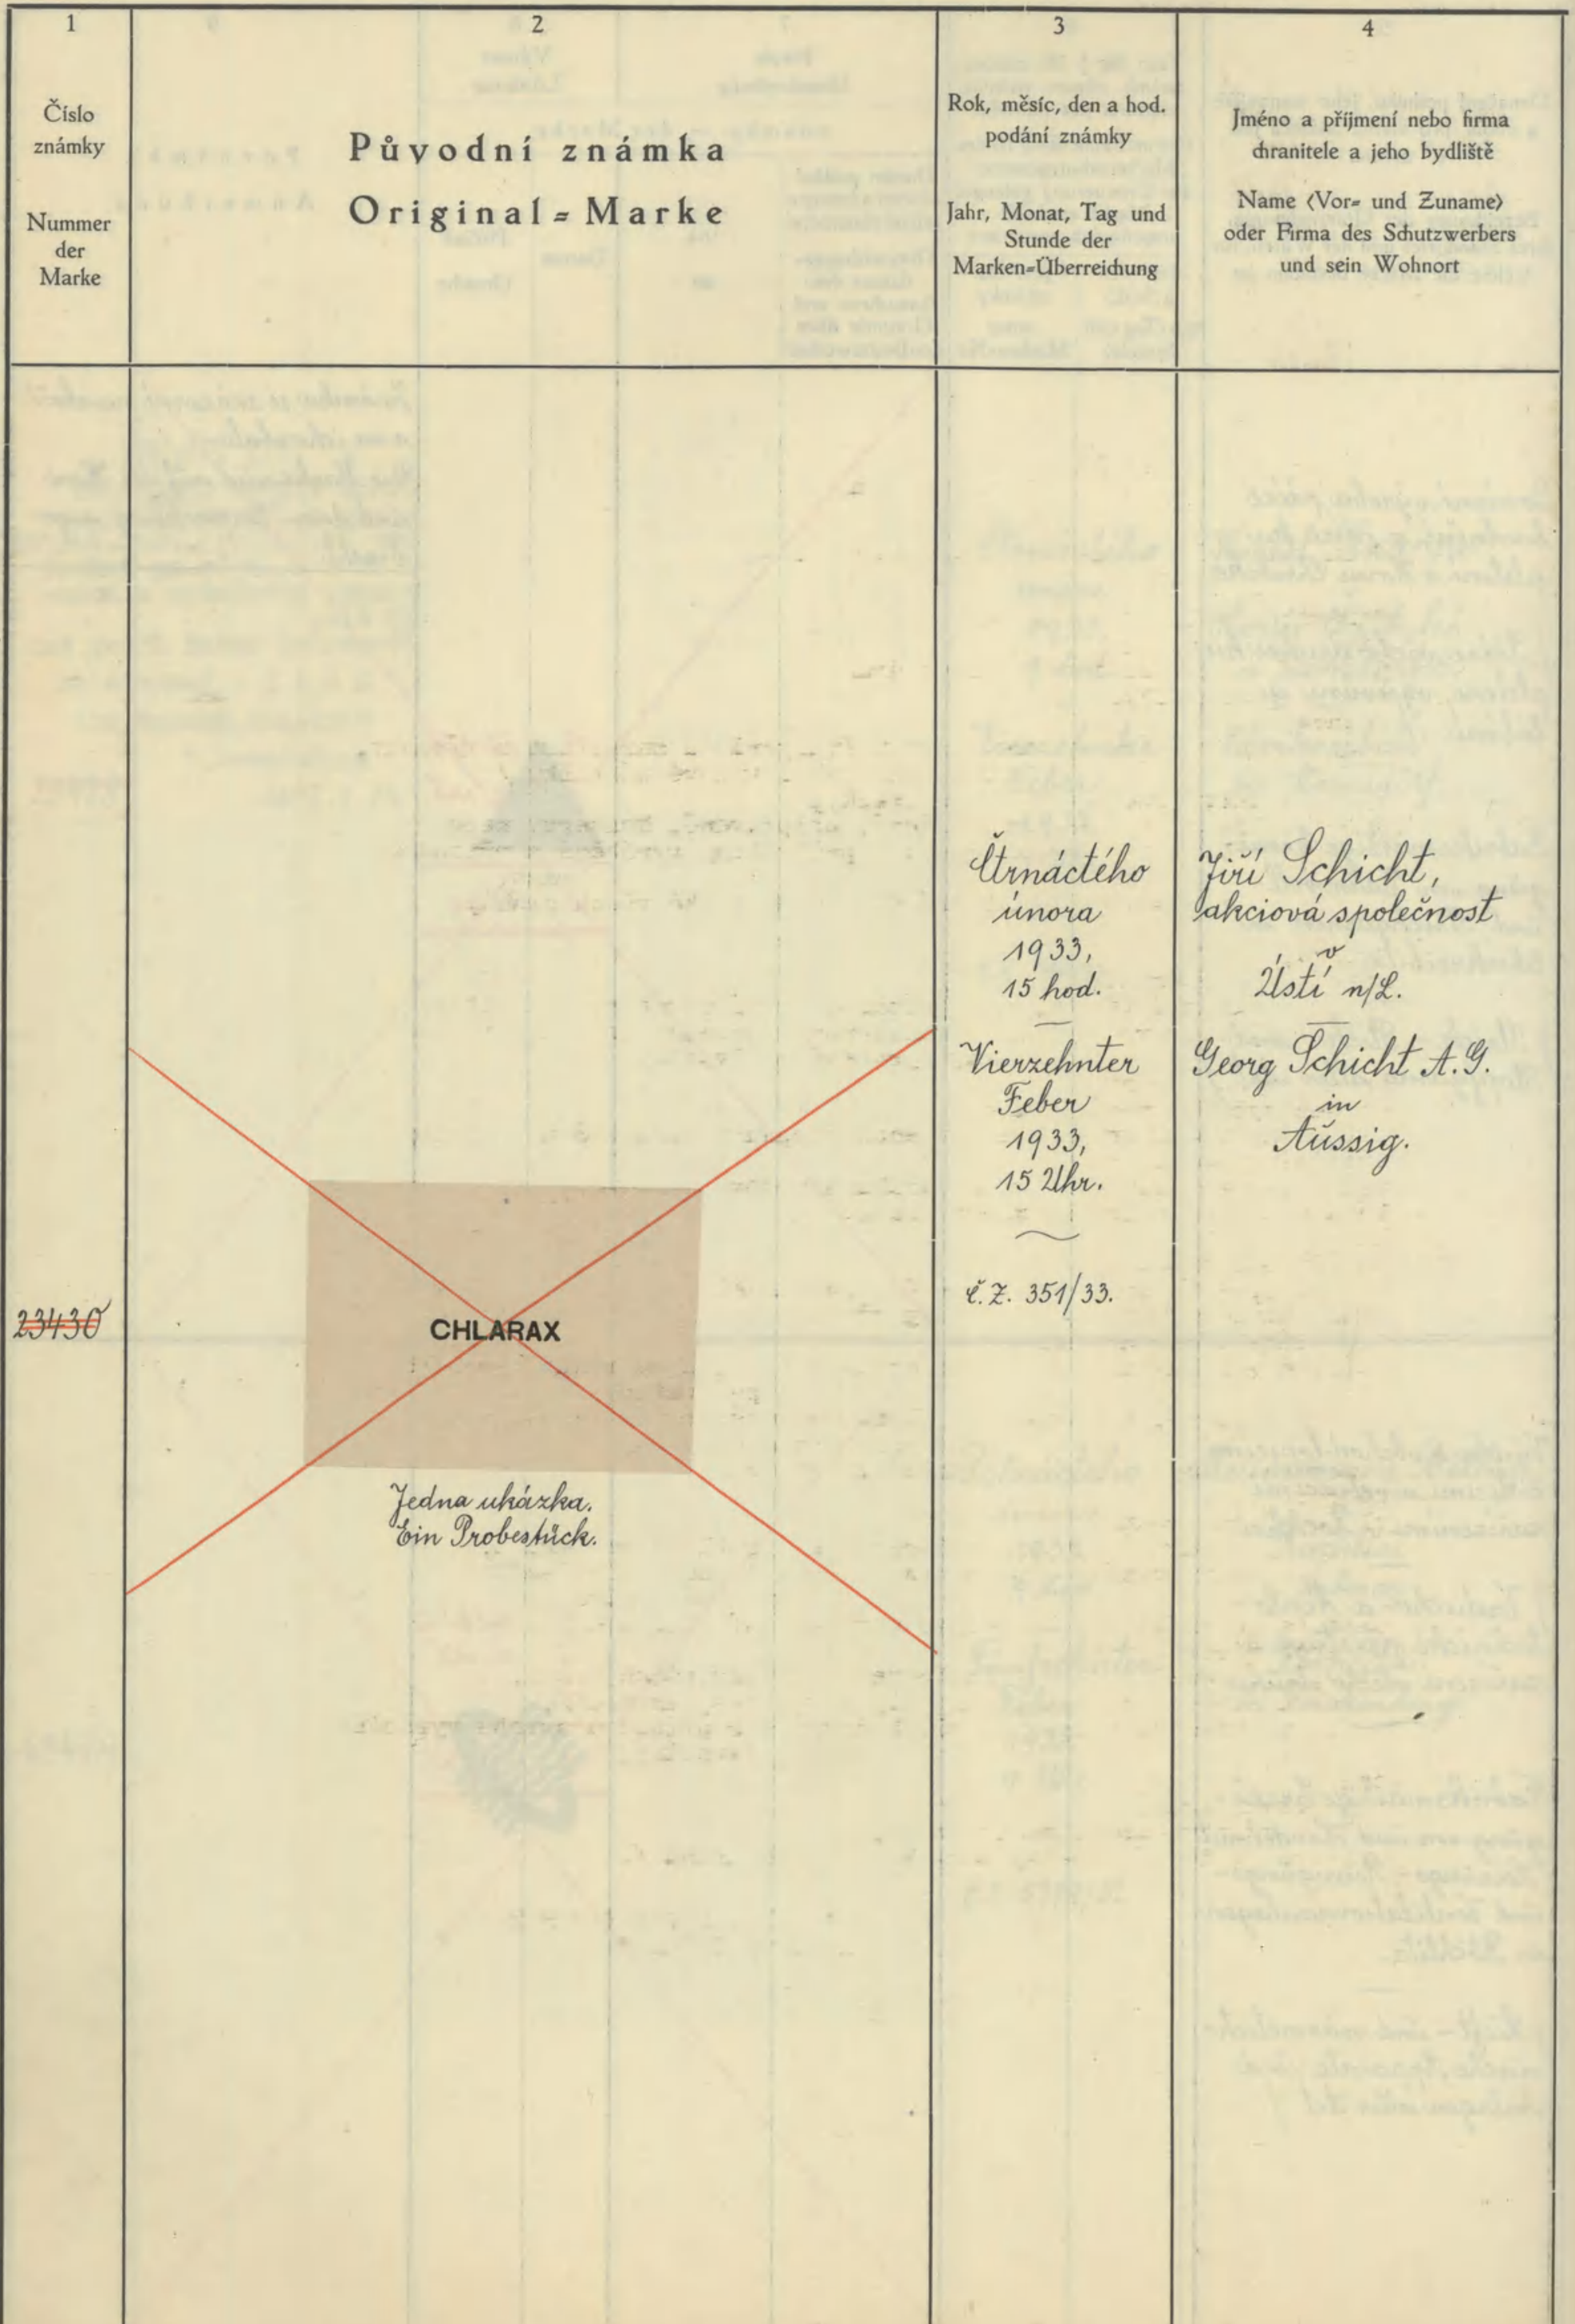 1
Číslo
známky
Nummer
der
Marke
2
Původní známka
Original=Marke
3
Rok, měsíc, den a hod.
podání známky
Jahr, Monat, Tag und
Stunde der
Marken=Überreichung
4
Jméno a příjmení nebo firma
chranitele a jeho bydliště
Name (Vor= und Zuname)
oder Firma des Schutzwerbers
und sein Wohnort
23430
CHLARAX
Jedna ukázka.
Ein Probestück.
Čtrnáctého
února
1933,
15 hod.
Vierzehnter
Feber
1933,
15 Uhr.
č.Z. 351/33.
Jiří Schicht,
akciová společnost
v
Ústí n/L.
Georg Schicht A.G.
in
Aussig.